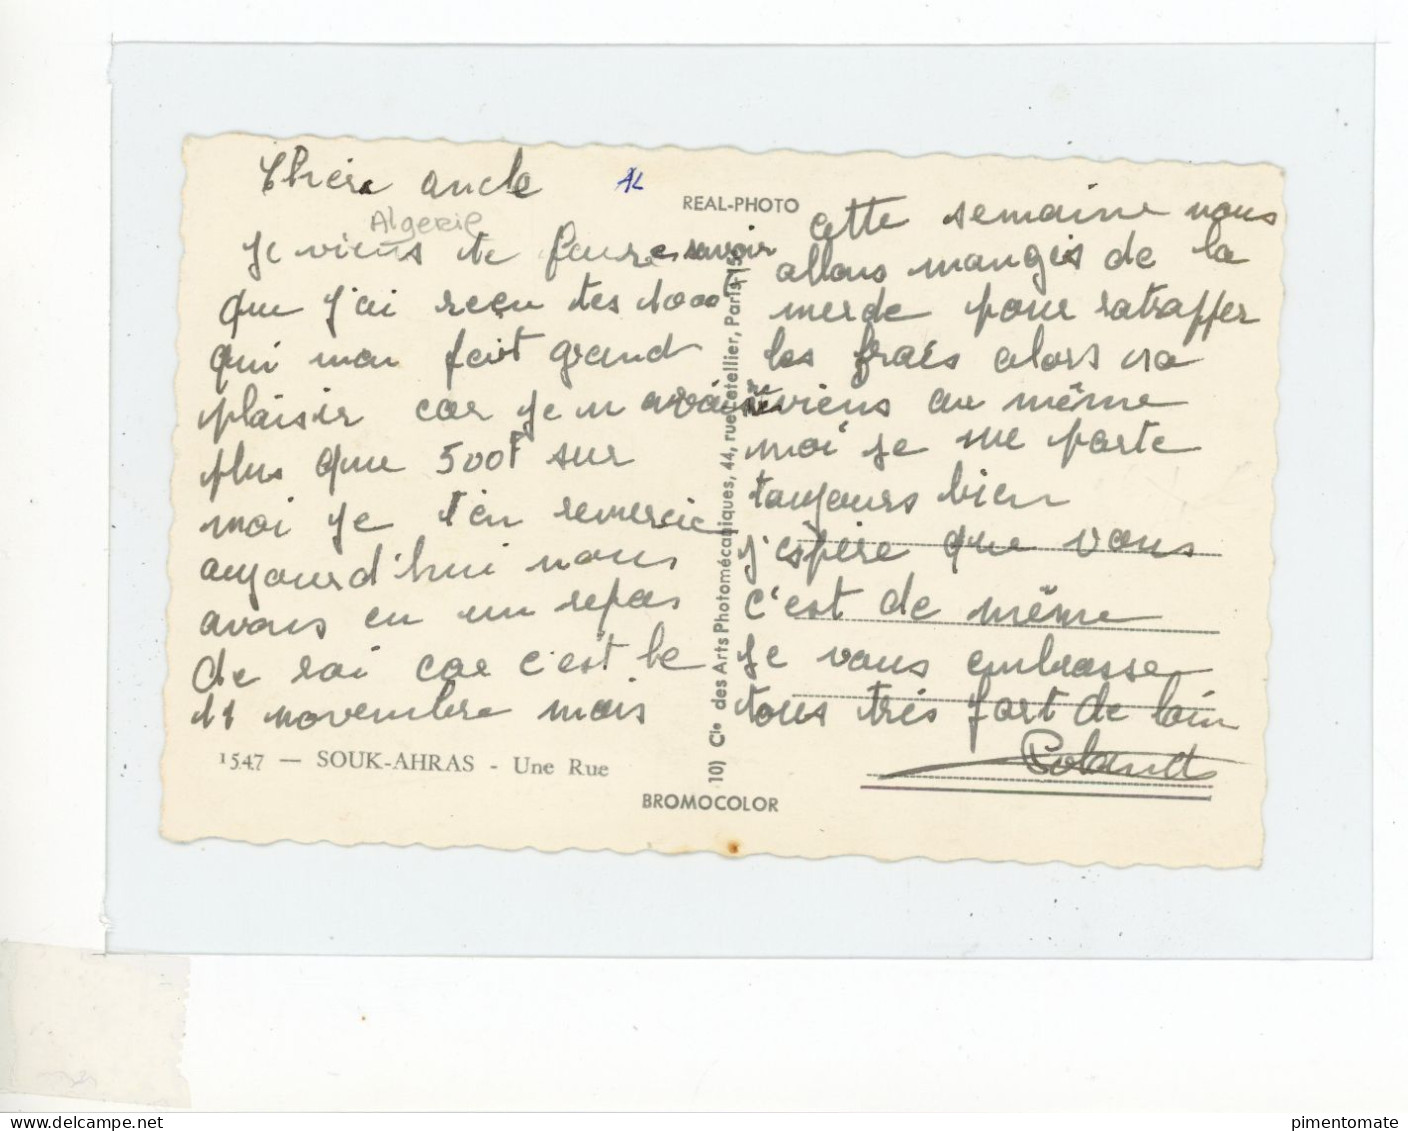 Chère oncle
AL
Algerie
je viens te faire savoir
que j'ai reçu tes 1000F
qui mon fait grand
plaisir car je n avais
plus que 500F sur
moi je t'en remercie
aujourd'hui nous
avons eu un repas
de roi car c'est le
11 novembre mais
1547 — SOUK-AHRAS - Une Rue
REAL-PHOTO
10) Cie des Arts Photomécaniques, 44, rue Letellier, Paris-15e
BROMOCOLOR
cette semaine nous
allons mangés de la
merde pour ratraffer
les frais alors sa
reviens au même
moi je me porte
toujours bien
j'espère que vous
c'est de même
je vous embrasse
tous très fort de loin
Roland
pimentomate